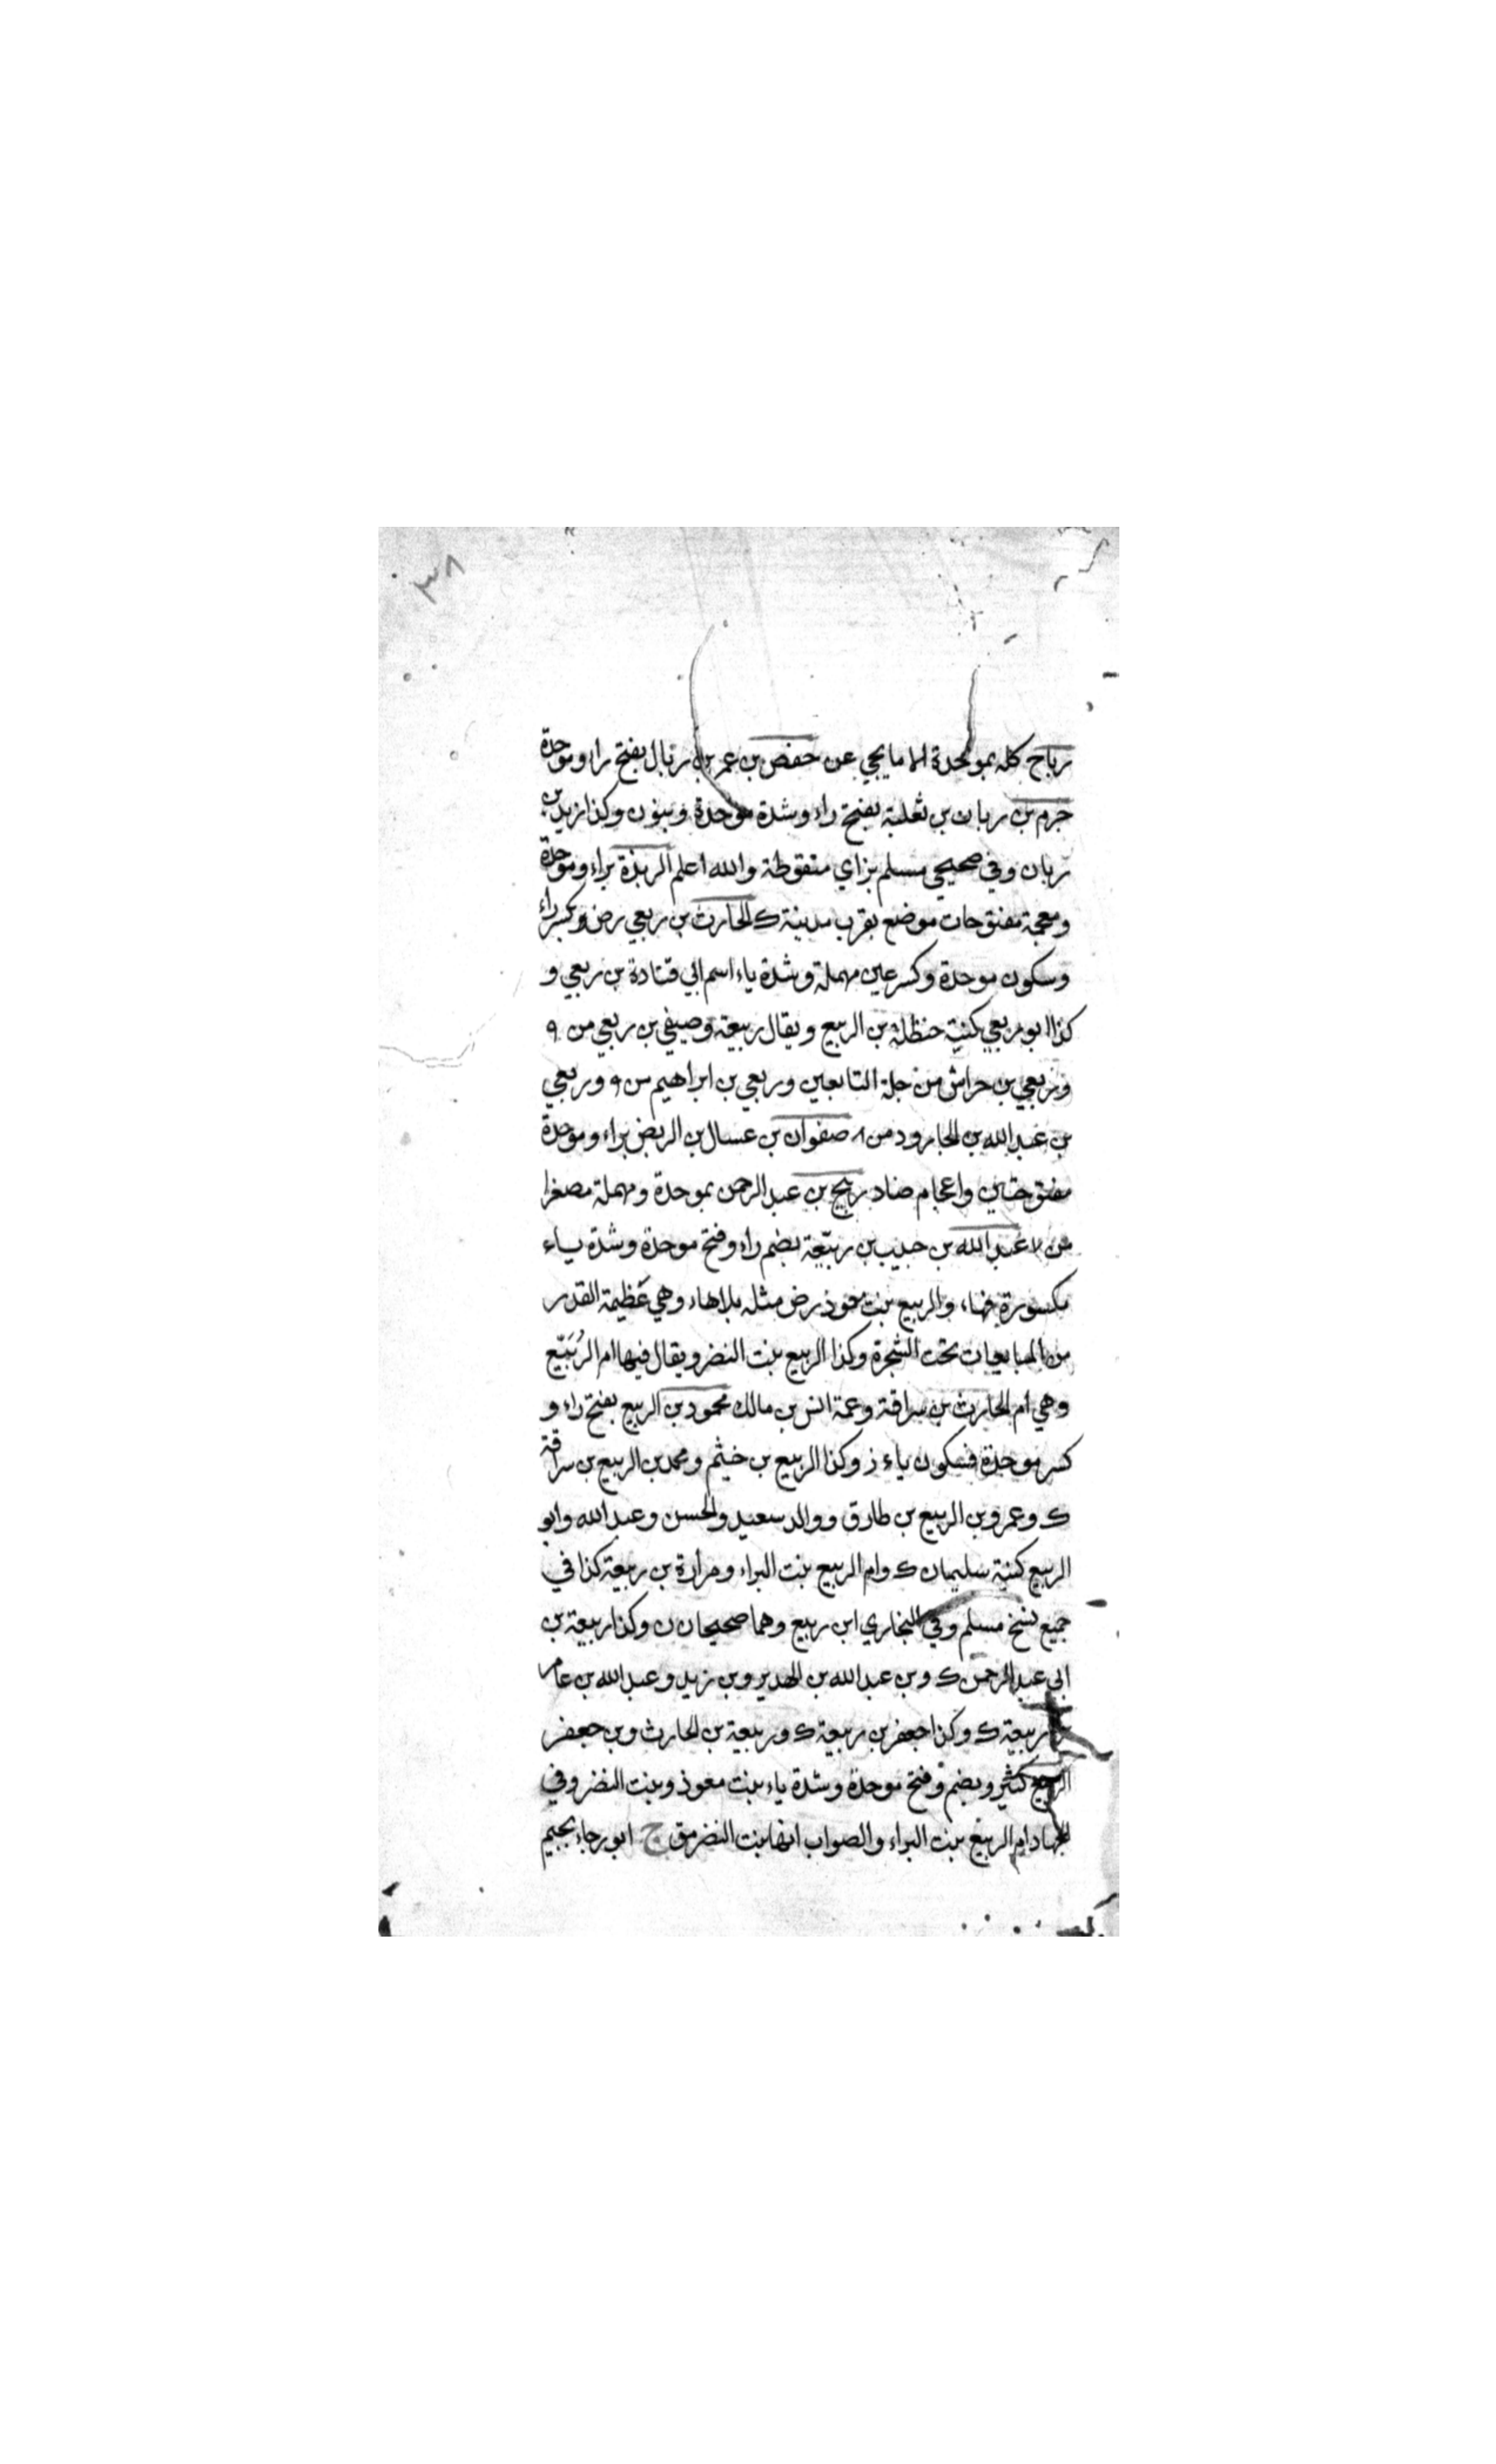 ٣٨
رباح كله بموحدة الا ما يجي عن حفص بن عمر بن ربال بفتح راء وموحدة
جرم بن ربان بن ثعلبة بفتح راء وشدة موحدة وبنون وكذا زيد بن
ربان وفي صحيحي مسلم بزاي منقوطة والله اعلم الربذة براء وموحدة
ومعجمة مفتوحات موضع بقرب مدينة ك الحارث بن ربعي رض وبكسر راء
وسكون موحدة وكسر عين مهملة وشدة ياء اسم ابي قتادة بن ربعي و
كذا ابو ربعي كنية حنظلة بن الربيع ويقال ربيعة وصيفي بن ربعي من ٩
وربعي بن حراش من جلة التابعين وربعي بن ابراهيم من ٩ وربعي
بن عبد الله بن الجارود من ٨ صفوان بن عسال بن الربض براء وموحدة
مفتوحتين واعجام ضاد ربيح بن عبد الرحمن بموحدة ومهملة مصغرا
من ٧ عبد الله بن حبيب بن ربيعة بضم راء وفتح موحدة وشدة ياء
مكسورة فهاء والربيع بنت معوذ رض مثله بلا هاء وهي عظيمة القدر
من المبايعات تحت الشجرة وكذا الربيع بنت النضر ويقال فيها ام الرُبَيّع
وهي ام الحارث بن سراقة وعمة انس بن مالك محمود بن الربيع بفتح راء و
كسر موحدة فسكون ياء ز وكذا الربيع بن خيثم ومحمد بن الربيع بن سراقة
ك وعمرو بن الربيع بن طارق ووالد سعيد والحسن وعبد الله وابو
الربيع كنية سليمان ك وام الربيع بنت البراء ومرارة بن ربيعة كذا في
جميع نسخ مسلم وفي البخاري ابن ربيع وهما صحيحان ن وكذا ربيعة بن
ابي عبد الرحمن ك وبن عبد الله بن الهدير وبن زيد وعبد الله بن عامر
بن ربيعة ك وكذا جعفر بن ربيعة ك وربيعة بن الحارث وبن جعفر
كثير وبضم وفتح موحدة وشدة ياء بنت معوذ وبنت النضر وفي
الجهاد ام الربيع بنت البراء والصواب انها بنت النضر مق ج ابو رجاء بجيم